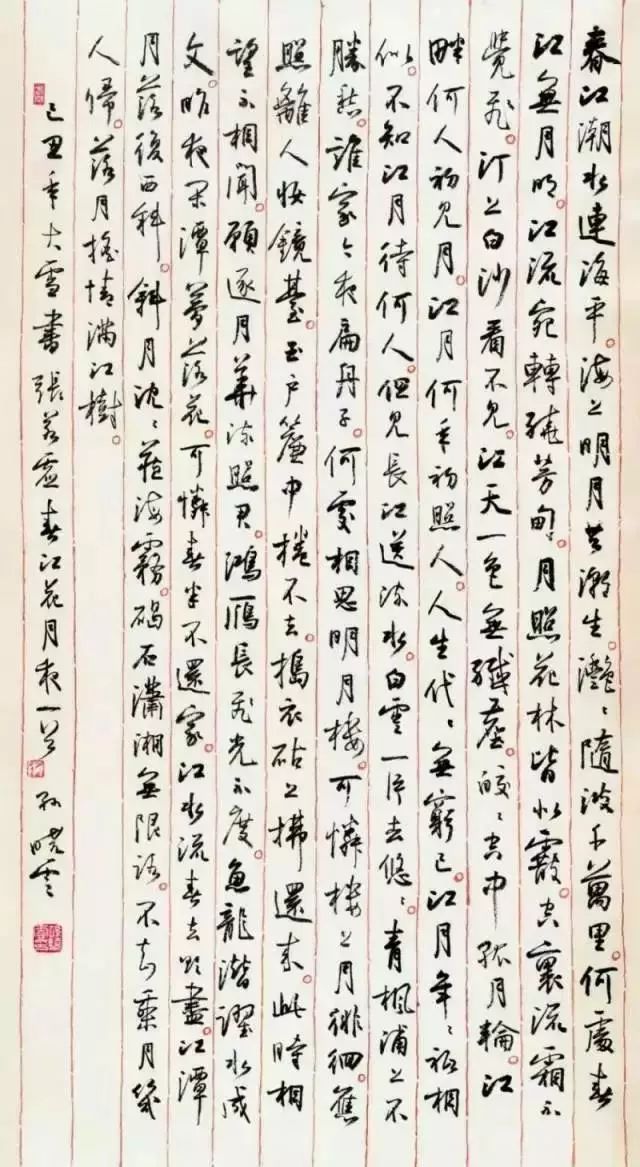 春江潮水連海平。海上明月共潮生。灧〻隨波千萬里。何處春
江無月明。江流宛轉繞芳甸。月照花林皆似霰。空裏流霜不
覺飛。汀上白沙看不見。江天一色無纖塵。皎〻空中孤月輪。江
畔何人初見月。江月何年初照人。人生代〻無窮已。江月年〻祗相
似。不知江月待何人。但見長江送流水。白雲一片去悠〻。青楓浦上不
勝愁。誰家今夜扁舟子。何處相思明月樓。可憐樓上月徘徊。應
照離人妝鏡臺。玉戶簾中捲不去。搗衣砧上拂還來。此時相
望不相聞。願逐月華流照君。鴻鴈長飛光不度。魚龍潛躍水成
文。昨夜閑潭夢落花。可憐春半不還家。江水流春去欲盡。江潭
月落復西斜。斜月沈〻藏海霧。碣石瀟湘無限路。不知乘月幾
人歸。落月搖情滿江樹。
己丑年大雪書張若虛春江花月夜一首 孫曉雲